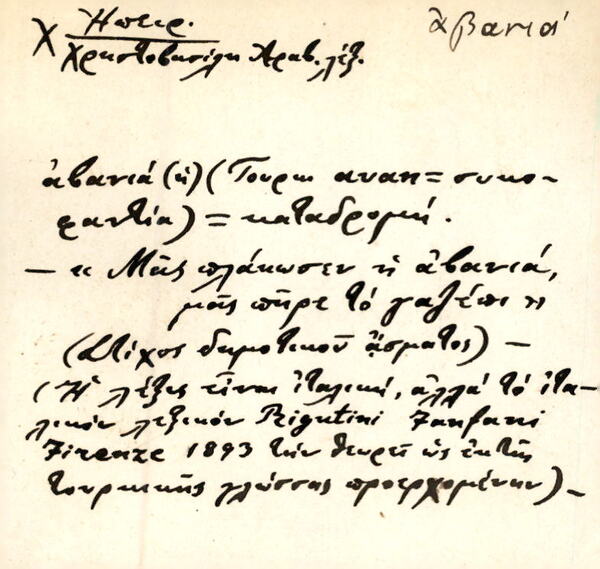 Χ Ἤπειρ. ἀβανιά
Χρηστοβασίλη Ἀραβ. λέξ.
ἀβανιά (ἡ) (Τουρκ αvanι = συκο-
φαντία) = καταδρομή.
— « Μᾶς πλάκωσεν ἡ ἀβανιά,
μᾶς πῆρε τό γαζέπι »
(Στίχος δημοτικοῦ ᾄσματος) —
(Ἡ λέξις εἶναι ἰταλική, ἀλλά τό ἰτα-
λικόν λεξικόν Rigutini Fanfani
Firenze 1893 τήν θεωρεῖ ὡς ἐκ τῆς
τουρκικῆς γλώσσας προερχομένην) —